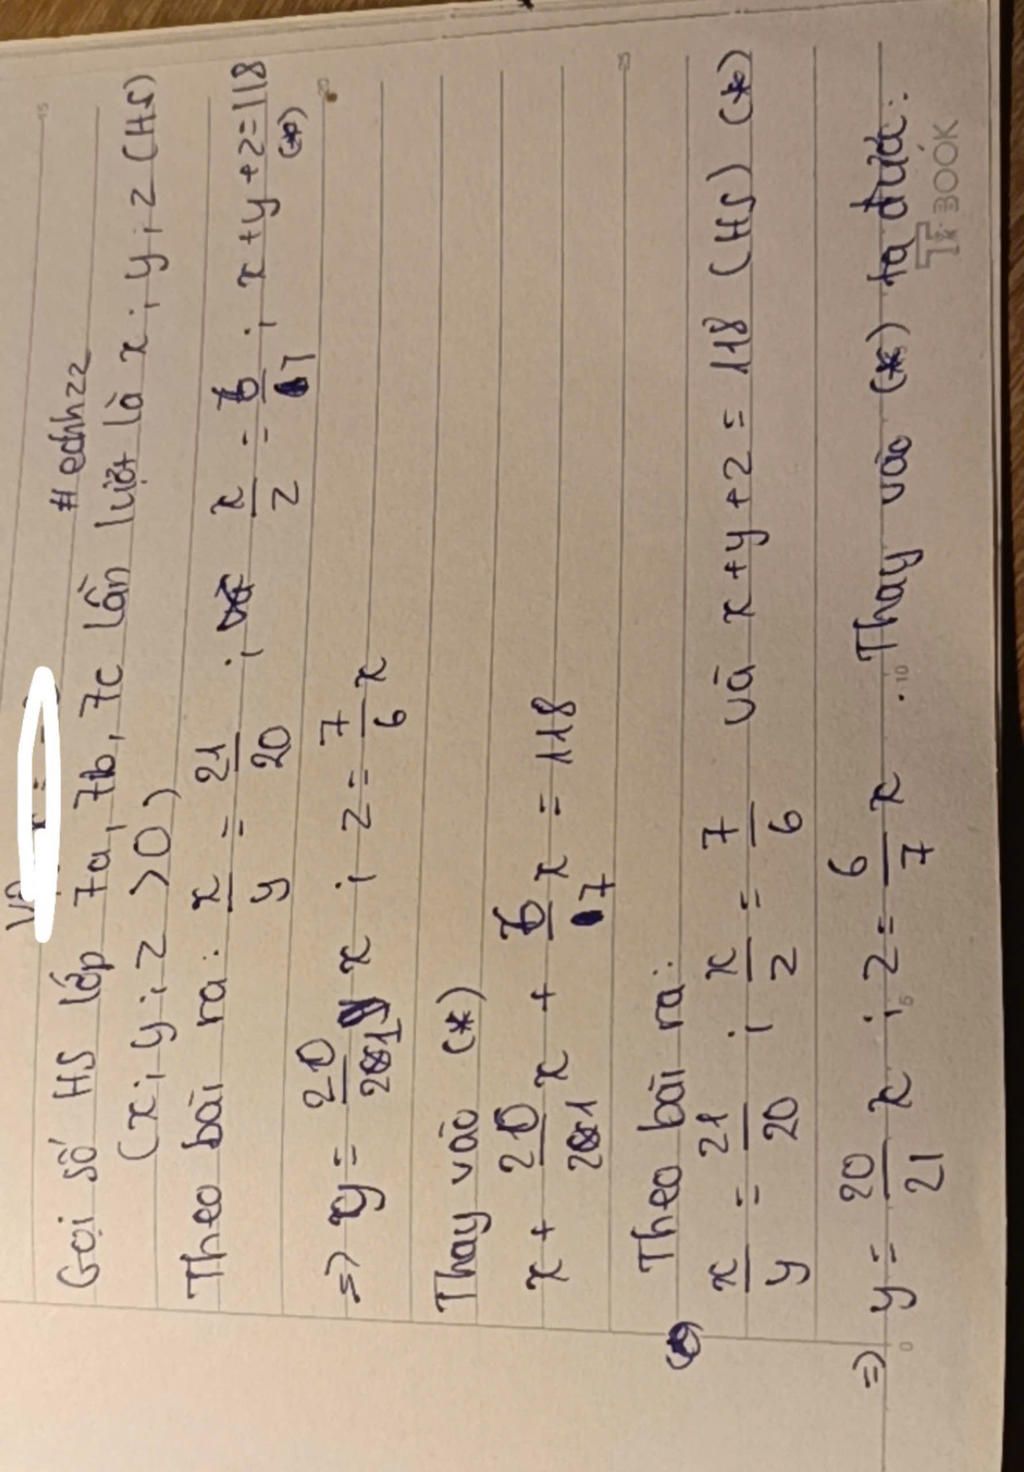 # echhzz
Gọi số HS lớp 7a, 7b, 7c lần lượt là x ; y ; z (HS)
(x ; y ; z > 0)
Theo bài ra: x/y = 21/20 ; x/z = 6/7 ; x + y + z = 118 (*)
=> y = 20/21 x ; z = 7/6 x
Thay vào (*)
x + 20/21 x + 6/7 x = 118
Theo bài ra:
x/y = 21/20 ; x/z = 7/6 và x + y + z = 118 (HS) (*)
=> y = 20/21 x ; z = 6/7 x . Thay vào (*) ta được:
BOOK